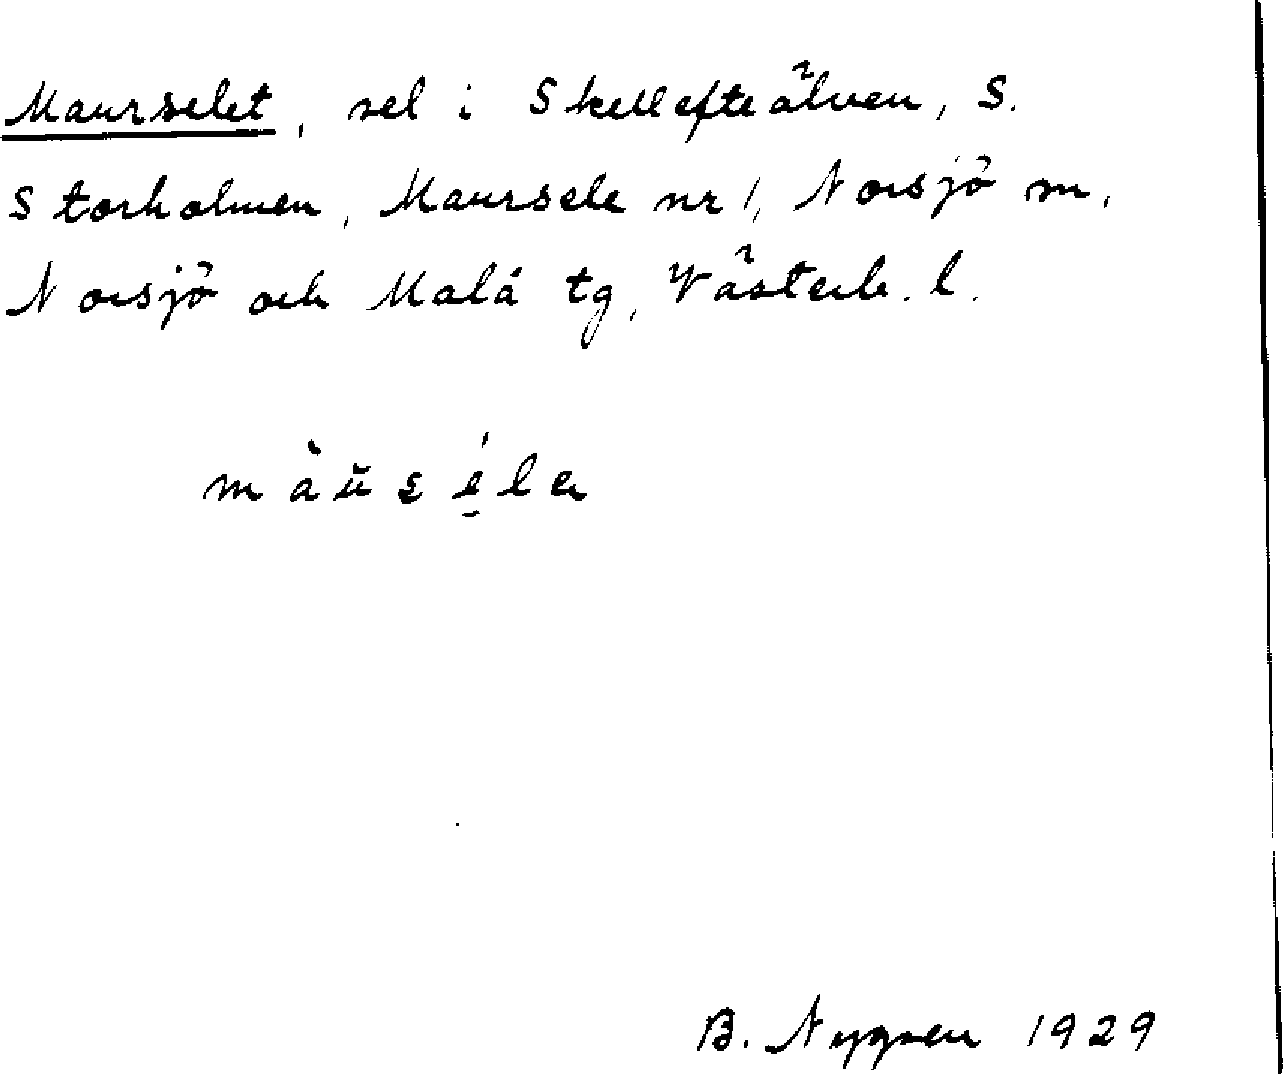 Maurselet, sel i Skellefteälven, S.
Storholmen, Maursele nr 1, Norsjö sn,
Norsjö och Malå tg, Västerb. l.
màŭsé̠lα
B. Nygren 1929